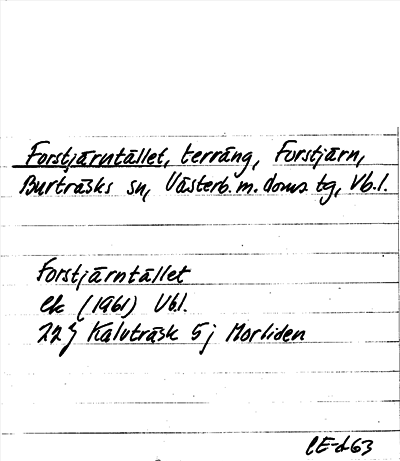 Forstjärntället, terräng, Forstjärn,
Burträsks sn, Västerb. m. doms tg, Vb. l.
Forstjärntället
ek (1961) Vb l.
22 J Kalvträsk 5 j Morliden
CE-d 63